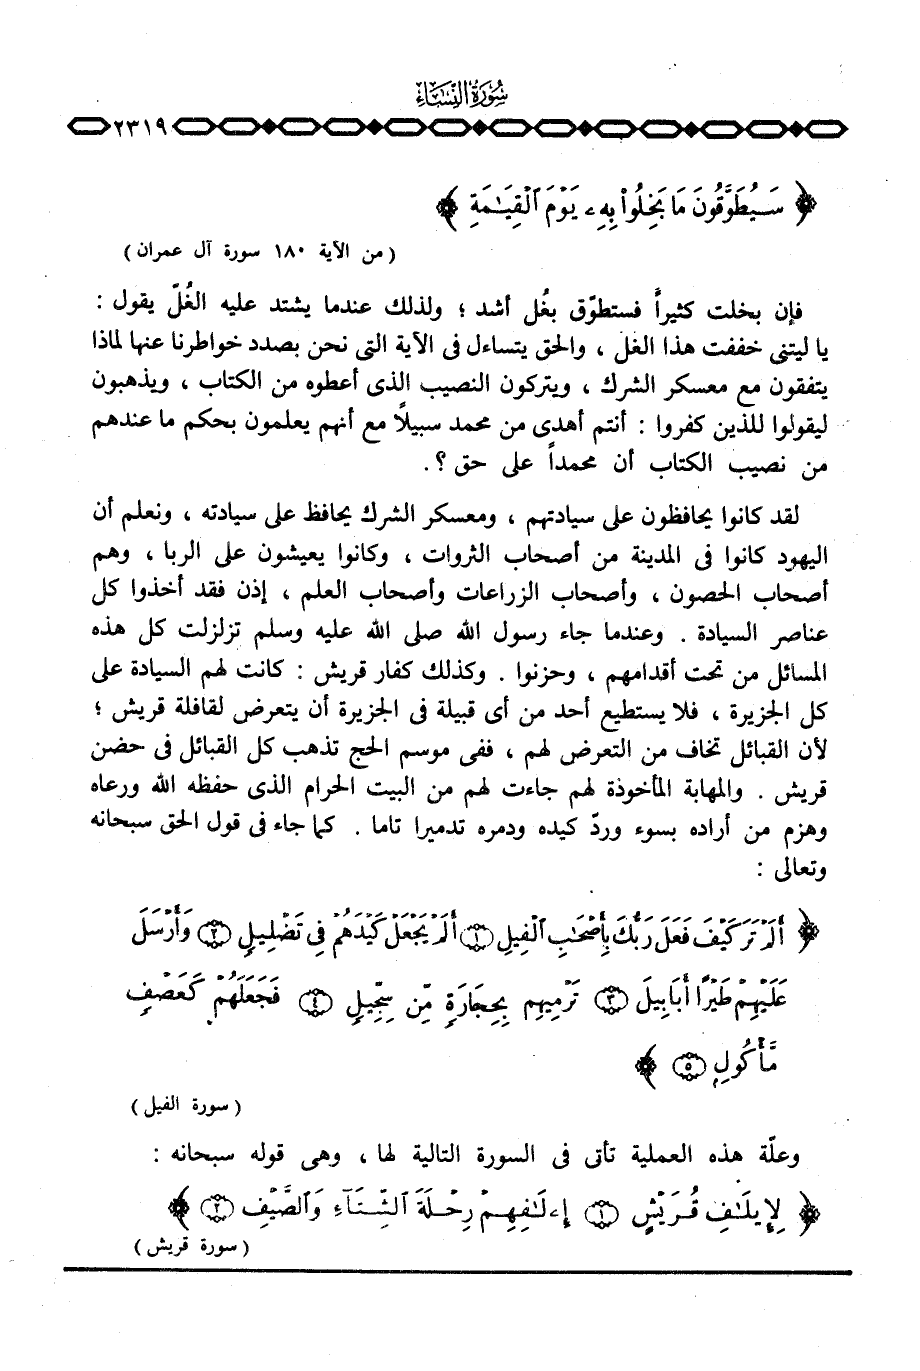 سُورَةُ النِّسَاءِ
٢٣١٩
﴿ سَيُطَوَّقُونَ مَا بَخِلُوا۟ بِهِۦ يَوْمَ ٱلْقِيَـٰمَةِ ﴾
( من الآية ١٨٠ سورة آل عمران )
فإن بخلت كثيراً فستطوّق بغُل أشد ؛ ولذلك عندما يشتد عليه الغُلّ يقول :
يا ليتنى خففت هذا الغل ، والحق يتساءل فى الآية التى نحن بصدد خواطرنا عنها لماذا
يتفقون مع معسكر الشرك ، ويتركون النصيب الذى أعطوه من الكتاب ، ويذهبون
ليقولوا للذين كفروا : أنتم أهدى من محمد سبيلاً مع أنهم يعلمون بحكم ما عندهم
من نصيب الكتاب أن محمداً على حق ؟.
لقد كانوا يحافظون على سيادتهم ، ومعسكر الشرك يحافظ على سيادته ، ونعلم أن
اليهود كانوا فى المدينة من أصحاب الثروات ، وكانوا يعيشون على الربا ، وهم
أصحاب الحصون ، وأصحاب الزراعات وأصحاب العلم ، إذن فقد أخذوا كل
عناصر السيادة . وعندما جاء رسول الله صلى الله عليه وسلم تزلزلت كل هذه
المسائل من تحت أقدامهم ، وحزنوا . وكذلك كفار قريش : كانت لهم السيادة على
كل الجزيرة ، فلا يستطيع أحد من أى قبيلة فى الجزيرة أن يتعرض لقافلة قريش ؛
لأن القبائل تخاف من التعرض لهم ، ففى موسم الحج تذهب كل القبائل فى حضن
قريش . والمهابة المأخوذة لهم جاءت لهم من البيت الحرام الذى حفظه الله ورعاه
وهزم من أراده بسوء وردّ كيده ودمره تدميرا تاما . كما جاء فى قول الحق سبحانه
وتعالى :
﴿ أَلَمْ تَرَ كَيْفَ فَعَلَ رَبُّكَ بِأَصْحَـٰبِ ٱلْفِيلِ ١ أَلَمْ يَجْعَلْ كَيْدَهُمْ فِى تَضْلِيلٍ ٢ وَأَرْسَلَ
عَلَيْهِمْ طَيْرًا أَبَابِيلَ ٣ تَرْمِيهِم بِحِجَارَةٍ مِّن سِجِّيلٍ ٤ فَجَعَلَهُمْ كَعَصْفٍ
مَّأْكُولٍ ٥ ﴾
( سورة الفيل )
وعلّة هذه العملية تأتى فى السورة التالية لها ، وهى قوله سبحانه :
﴿ لِإِيلَـٰفِ قُرَيْشٍ ١ إِۦلَـٰفِهِمْ رِحْلَةَ ٱلشِّتَآءِ وَٱلصَّيْفِ ٢ ﴾
( سورة قريش )